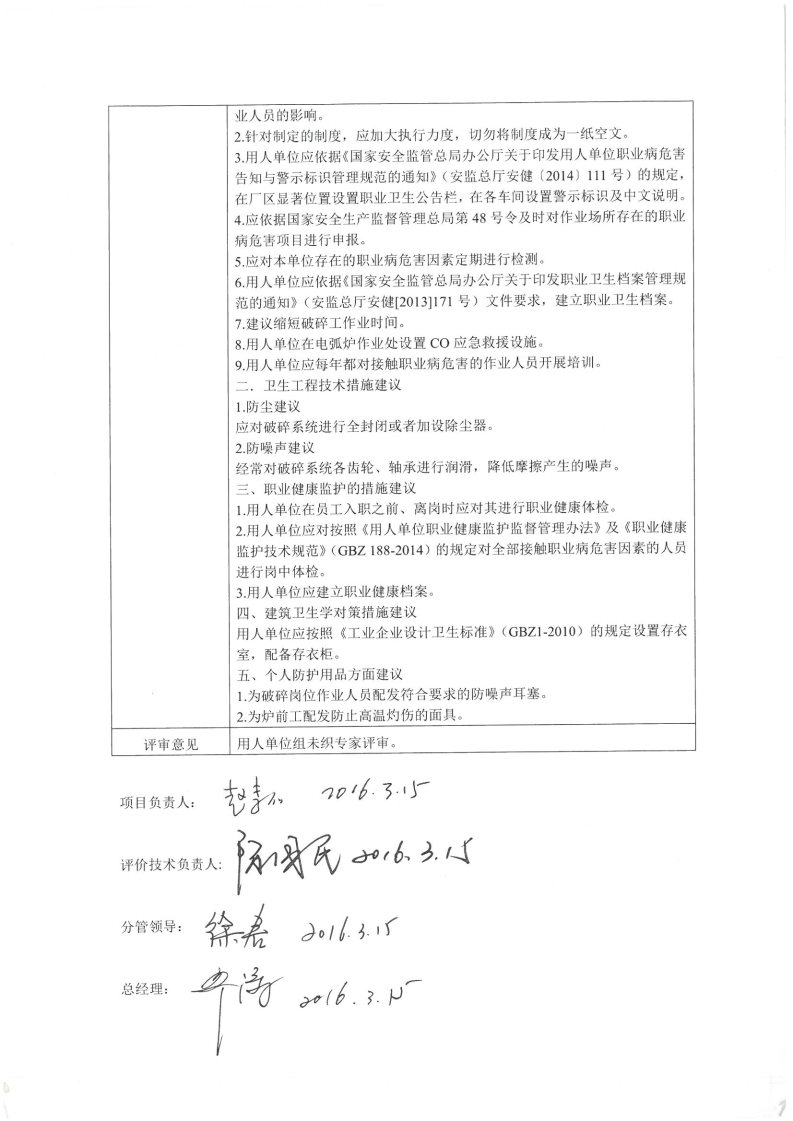 业人员的影响。
2.针对制定的制度，应加大执行力度，切勿将制度成为一纸空文。
3.用人单位应依据《国家安全监管总局办公厅关于印发用人单位职业病危害
告知与警示标识管理规范的通知》（安监总厅安健〔2014〕111 号）的规定，
在厂区显著位置设置职业卫生公告栏，在各车间设置警示标识及中文说明。
4.应依据国家安全生产监督管理总局第 48 号令及时对作业场所存在的职业
病危害项目进行申报。
5.应对本单位存在的职业病危害因素定期进行检测。
6.用人单位应依据《国家安全监管总局办公厅关于印发职业卫生档案管理规
范的通知》（安监总厅安健[2013]171 号）文件要求，建立职业卫生档案。
7.建议缩短破碎工作业时间。
8.用人单位在电弧炉作业处设置 CO 应急救援设施。
9.用人单位应每年都对接触职业病危害的作业人员开展培训。
二．卫生工程技术措施建议
1.防尘建议
应对破碎系统进行全封闭或者加设除尘器。
2.防噪声建议
经常对破碎系统各齿轮、轴承进行润滑，降低摩擦产生的噪声。
三、职业健康监护的措施建议
1.用人单位在员工入职之前、离岗时应对其进行职业健康体检。
2.用人单位应对按照《用人单位职业健康监护监督管理办法》及《职业健康
监护技术规范》（GBZ 188-2014）的规定对全部接触职业病危害因素的人员
进行岗中体检。
3.用人单位应建立职业健康档案。
四、建筑卫生学对策措施建议
用人单位应按照《工业企业设计卫生标准》（GBZ1-2010）的规定设置存衣
室，配备存衣柜。
五、个人防护用品方面建议
1.为破碎岗位作业人员配发符合要求的防噪声耳塞。
2.为炉前工配发防止高温灼伤的面具。
评审意见 用人单位组未织专家评审。
项目负责人： 2016.3.15
评价技术负责人: 陈国民 2016.3.15
分管领导： 徐磊 2016.3.15
总经理： 2016.3.15